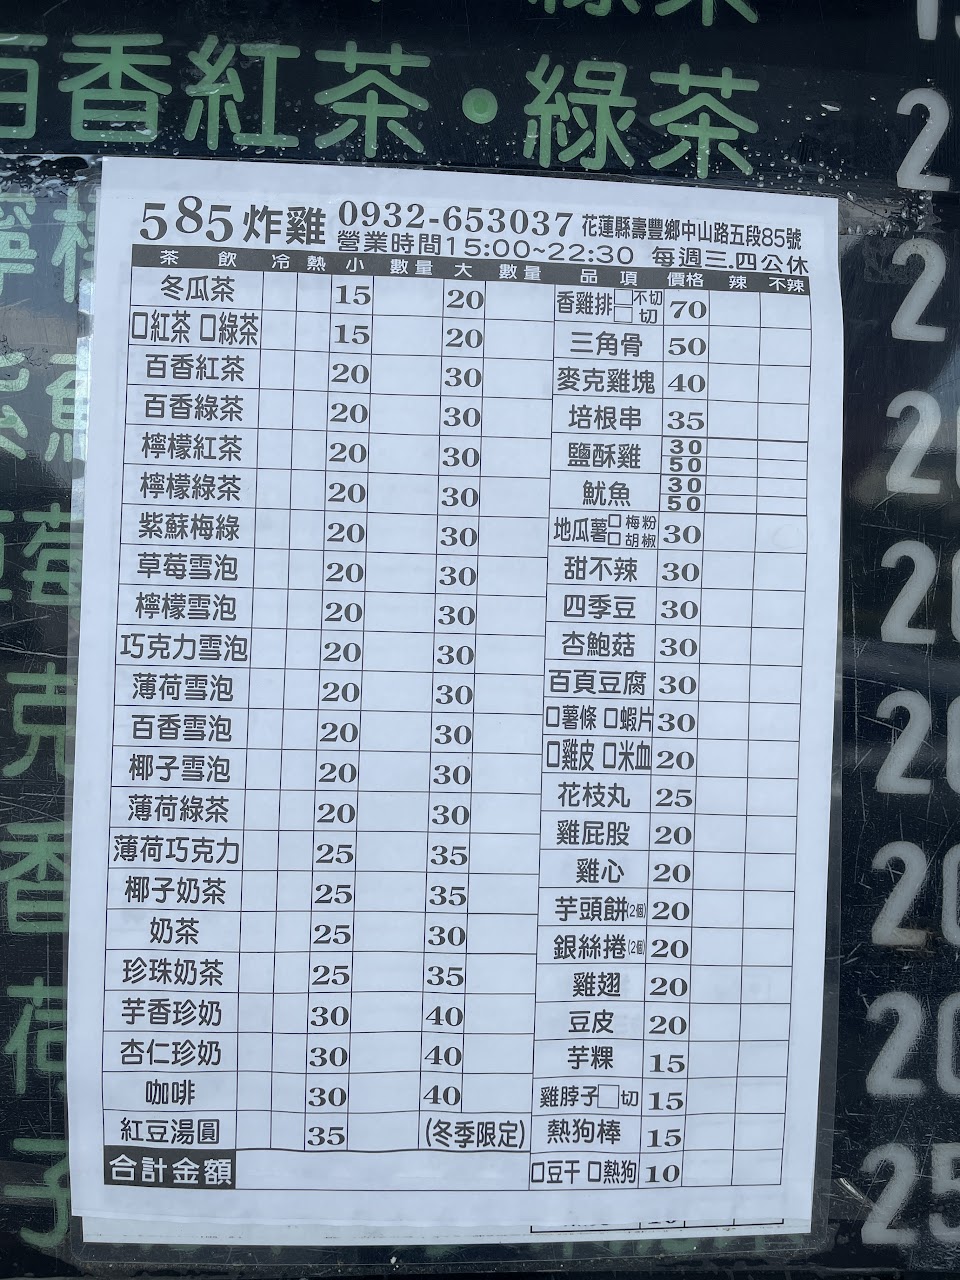 百香紅茶·綠茶
585炸雞 0932-653037 花蓮縣壽豐鄉中山路五段85號
營業時間15:00~22:30 每週三.四公休
茶飲 冷 熱 小 數量 大 數量 品項 價格 辣 不辣
冬瓜茶 15 20
□紅茶 □綠茶 15 20
百香紅茶 20 30
百香綠茶 20 30
檸檬紅茶 20 30
檸檬綠茶 20 30
紫蘇梅綠 20 30
草莓雪泡 20 30
檸檬雪泡 20 30
巧克力雪泡 20 30
薄荷雪泡 20 30
百香雪泡 20 30
椰子雪泡 20 30
薄荷綠茶 20 30
薄荷巧克力 25 35
椰子奶茶 25 35
奶茶 25 30
珍珠奶茶 25 35
芋香珍奶 30 40
杏仁珍奶 30 40
咖啡 30 40
紅豆湯圓 35 (冬季限定)
合計金額
香雞排 □不切 □切 70
三角骨 50
麥克雞塊 40
培根串 35
鹽酥雞 30 50
魷魚 30 50
地瓜薯 □梅粉 □胡椒 30
甜不辣 30
四季豆 30
杏鮑菇 30
百頁豆腐 30
□薯條 □蝦片 30
□雞皮 □米血 20
花枝丸 25
雞屁股 20
雞心 20
芋頭餅(2個) 20
銀絲捲(2個) 20
雞翅 20
豆皮 20
芋粿 15
雞脖子□切 15
熱狗棒 15
□豆干 □熱狗 10
2
2
20
20
2
20
20
25